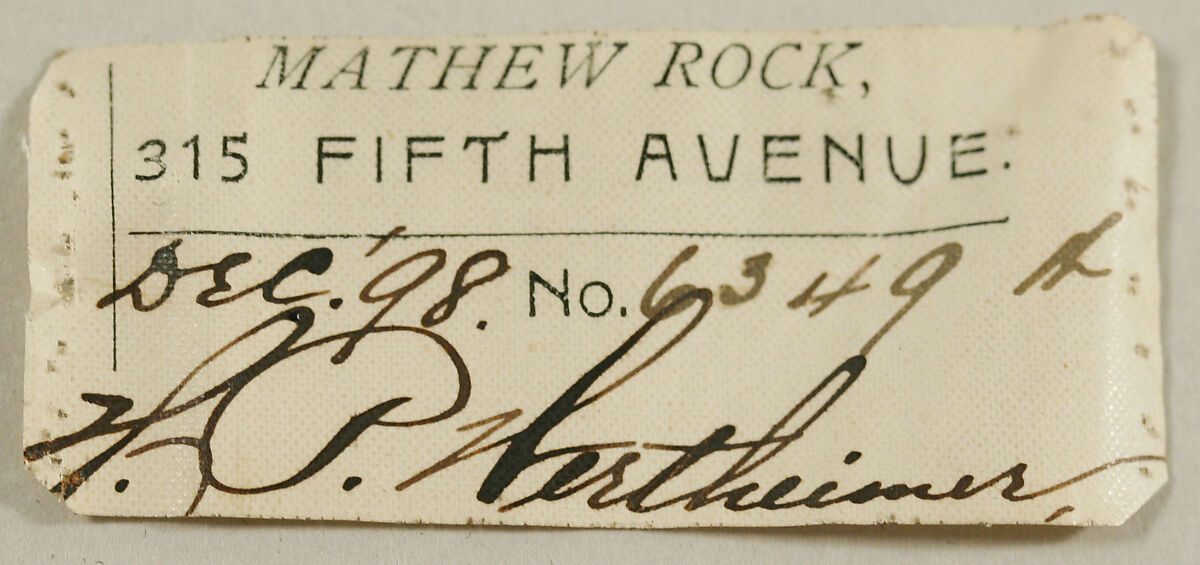 MATHEW ROCK,
315 FIFTH AVENUE.
Dec. '98. No. 6349
H. P. Wertheimer,